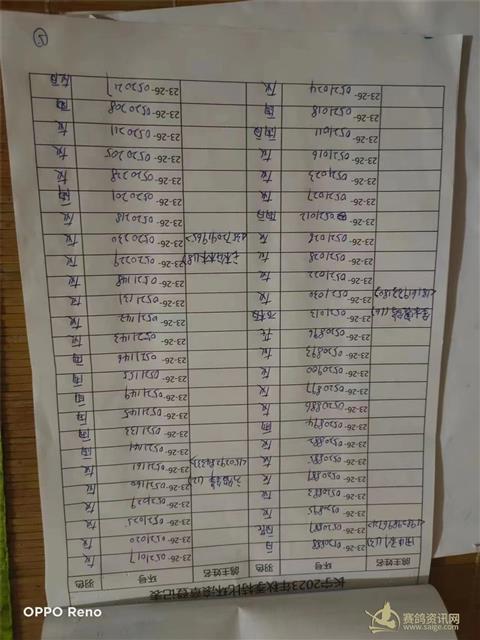 长宁2023年秋季特比环盖章登记表
鸽主姓名 环号 羽色 鸽主姓名 环号 羽色
23-26-0520888 23-26-0521017 灰
23-26-0520887 23-26-0521020 灰
23-26-0520895 灰 23-26-0521025 灰
23-26-0520883 灰 23-26-0521029 灰
23-26-0520889 灰 23-26-0521160 灰
23-26-0520885 灰 23-26-0521161 灰
23-26-0520882 灰 23-26-0521141 雨
23-26-0520894 雨 23-26-0521133 雨
23-26-0520886 灰 23-26-0521145 灰
23-26-0520877 灰 23-26-0521149 雨
23-26-0520900 灰 23-26-0521155 雨
23-26-0520893 灰 23-26-0521146 雨
23-26-0520896 花 23-26-0521143 灰
23-26-0521013 23-26-0521142 灰
23-26-0521030 灰 23-26-0521131 灰
23-26-0521022 灰 23-26-0521148 灰
23-26-0521028 灰 23-26-0520229 灰
23-26-0521026 灰 23-26-0520230 灰
23-26-0521012 雨白 23-26-0520218 灰
23-26-0521027 灰 23-26-0520201 雨
23-26-0521023 灰 23-26-0520228 灰
23-26-0521016 灰 23-26-0520205 灰
23-26-0521011 雨白 23-26-0520211 灰
23-26-0521018 雨 23-26-0520208 雨
23-26-0521024 灰 23-26-0520217 灰白
OPPO Reno
赛鸽资讯网
www.saige.com